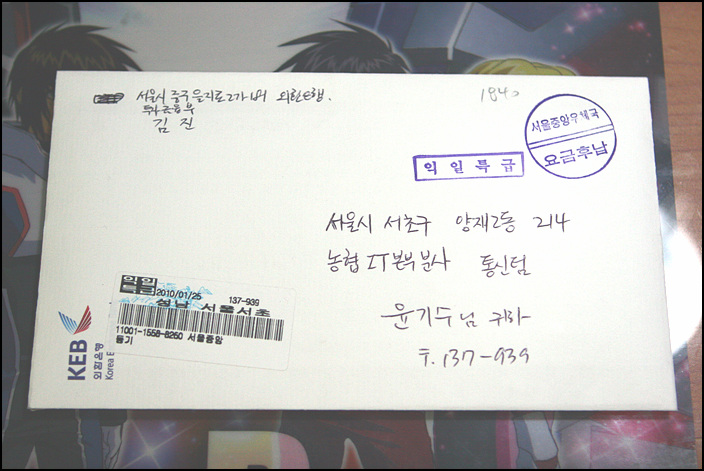 서울시 중구 을지로2가 외환은행.
투자금융부
김 진
1840
서울중앙우체국
요금후납
익일특급
서울시 서초구 양재2동 214
농협 IT본부분사 통신팀
윤기수님 귀하
〒. 137-939
익일
특급
2010/01/25
137-939
성남 서울서초
11001-1558-8260 서울중앙
등기
KEB
외환은행
Korea E